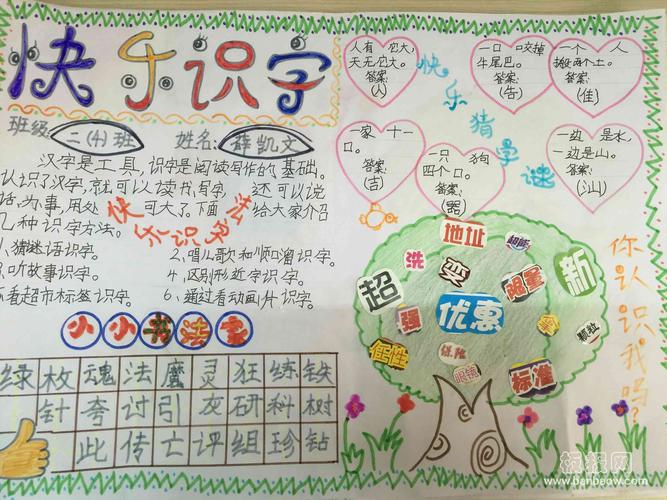 快乐识字
班级 二(4)班 姓名: 薛凯文
汉字是工具,识字是阅读写作的基础。
认识了汉字,就可以读书写字,还可以说
话,办事,用处可大了。下面给大家介绍
几种识字方法。
快乐识字法
1、猜谜语识字。 2、唱儿歌和顺口溜识字。
3、听故事识字。 4、区别形近字识字。
5、看超市标签识字。 6、通过看动画片识字。
小小书法家
绿枚魂法魔灵狂练铁
针夸讨引灰研科树
此传亡评组珍钻
快乐猜字谜
人有它大,
天无它大。
答案:
(人)
一口咬掉
牛尾巴。
答案:
(告)
一个人
搬两个土。
答案:
(佳)
一家十一
口。
答案:
(吉)
一只狗
四个口。
答案:
(器)
一边是水,
一边是山。
答案:
(汕)
地址
超
洗
买
限量
新
强
优惠
任性
保险
眼镜
标准
颗粒
你认识我吗?
板报网
www.banbaow.com